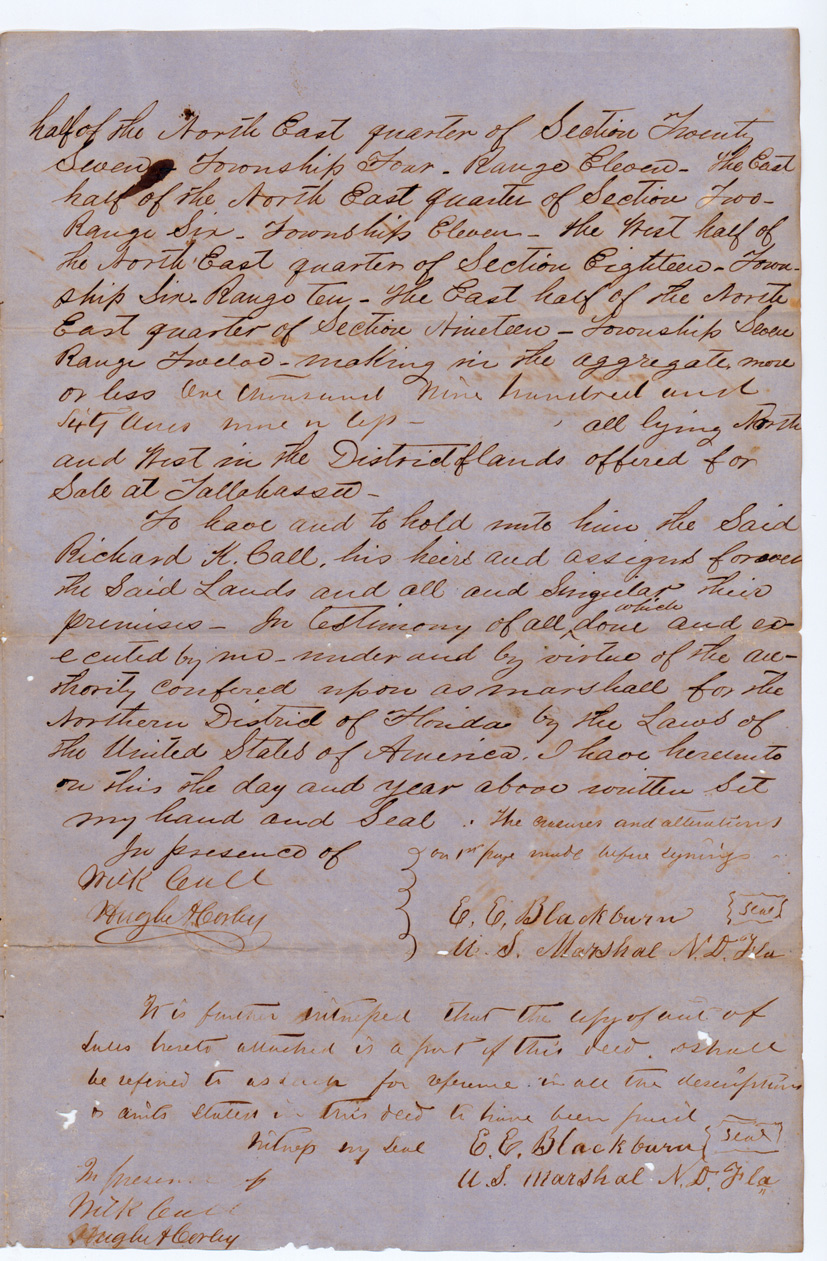 half of the North East quarter of Section Twenty
Seven - Township Four - Range Eleven - The East
half of the North East quarter of Section Two -
Range Six - Township Eleven - the West half of
the North East quarter of Section Eighteen - Town-
ship Six - Range Ten - The East half of the North
East quarter of Section Nineteen - Township Seven
Range Twelve - making in the aggregate more
or less One thousand Nine hundred and
Sixty Acres more or less - all lying North
and West in the District of lands offered for
Sale at Tallahassee -
To have and to hold unto him the Said
Richard K. Call, his heirs and assigns forever
the Said Lands and all and Singular their
premises - In testimony of all which done and ex-
ecuted by me - under and by virtue of the au-
thority confered upon as marshall for the
Northern District of Florida by the Laws of
the United States of America. I have hereunto
on this the day and year above written Set
my hand and Seal. The erasures and alterations
In presence of } on 1st page made before signing
Wilk Call
Hughe A Corley E. E. Blackburn {Seal}
U. S. Marshal N. D. Fla
It is further witnessed that the copy of
Sales hereto attached is a part of this deed. & shall
be refered to as such for reference in all the descriptions
& stated in this deed to have been
Witness my Seal E. E. Blackburn {Seal}
In presence of U. S. Marshal N. D. Fla
Wilk Call
Hughe A Corley